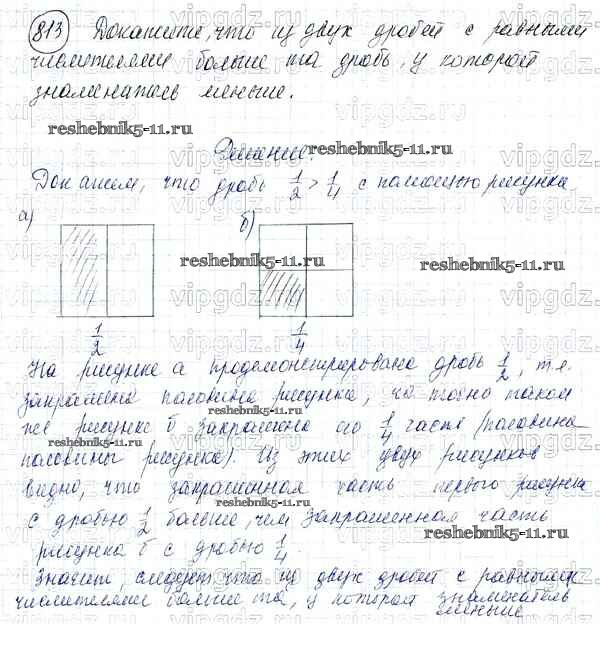 813 Докажите, что из двух дробей с равными
числителями больше та дробь, у которой
знаменатель меньше.
reshebnik5-11.ru
Решение:
reshebnik5-11.ru
Докажем, что дробь 1/2 > 1/4 с помощью рисунка.
а) б)
reshebnik5-11.ru
reshebnik5-11.ru
1/2 1/4
На рисунке а продемонстрирована дробь 1/2, т.е.
закрашена половина рисунка, на точно таком
reshebnik5-11.ru
же рисунке б закрашена его 1/4 часть (половина
reshebnik5-11.ru
половины рисунка). Из этих двух рисунков
видно, что закрашенная часть первого рисунка
reshebnik5-11.ru
с дробью 1/2 больше, чем закрашенная часть
reshebnik5-11.ru
рисунка б с дробью 1/4.
Значит, следует, что из двух дробей с равными
числителями больше та, у которой знаменатель
меньше
vipgdz.ru